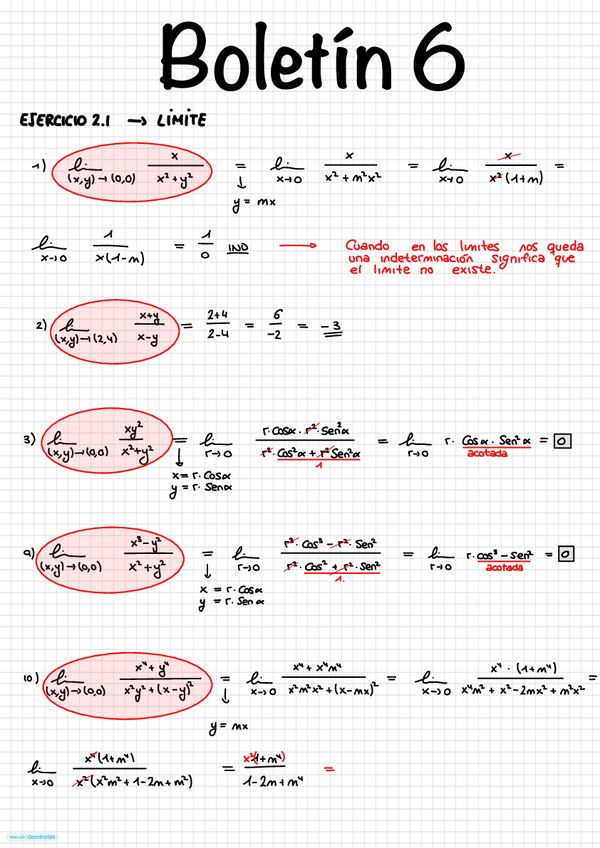 Boletín 6
EJERCICIO 2.1 → LÍMITE
1) lim (x,y)→(0,0) x/(x²+y²) = lim x→0 x/(x²+m²x²) = lim x→0 x/(x²(1+m)) =
↓ y = mx
lim x→0 1/(x(1-m)) = 1/0 IND → Cuando en los límites nos queda
una indeterminación significa que
el límite no existe.
2) lim (x,y)→(2,4) (x+y)/(x-y) = (2+4)/(2-4) = 6/-2 = -3
3) lim (x,y)→(0,0) xy²/(x²+y²) = lim r→0 (r·Cosα·r²·Sen²α)/(r²·Cos²α+r²Sen²α) = lim r→0 r·Cosα·Sen²α = 0
1 acotada
↓ x = r·Cosα
y = r·Senα
9) lim (x,y)→(0,0) (x³-y²)/(x²+y²) = lim r→0 (r³·Cos³-r²·Sen²)/(r²·Cos²+r²·Sen²) = lim r→0 r·cos³-Sen² = 0
1. acotada
↓ x = r·Cosα
y = r·Senα
10) lim (x,y)→(0,0) (x⁴+y⁴)/(x²y²+(x-y)²) = lim x→0 (x⁴+x⁴m⁴)/(x²m²x²+(x-mx)²) = lim x→0 (x⁴·(1+m⁴))/(x⁴m²+x²-2mx²+m²x²) =
↓ y = mx
lim x→0 (x⁴(1+m⁴))/(x²(x²m²+1-2m+m²)) = (x²(1+m⁴))/(1-2m+m⁴) =
Made with Goodnotes